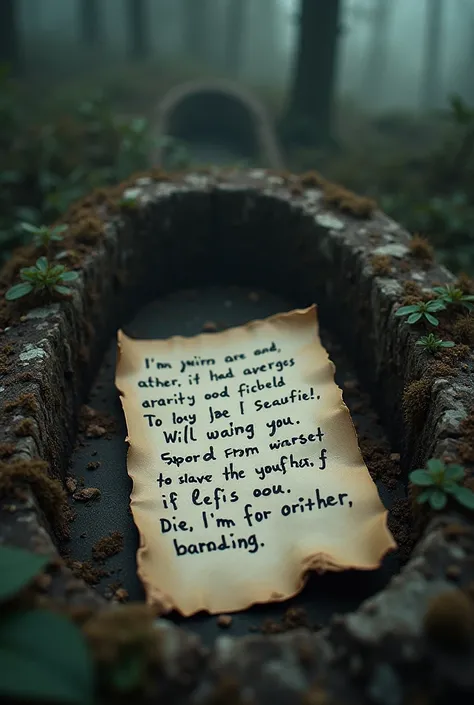 I'm jwirn are and,
ather, it had averges
ararity ood ficbeld
To loy Jae I Seaufie!,
Will waing you.
Sxpord From warset
to slave the youfhir. f
if Lefis oou.
Die, I'm for orither,
barnding.